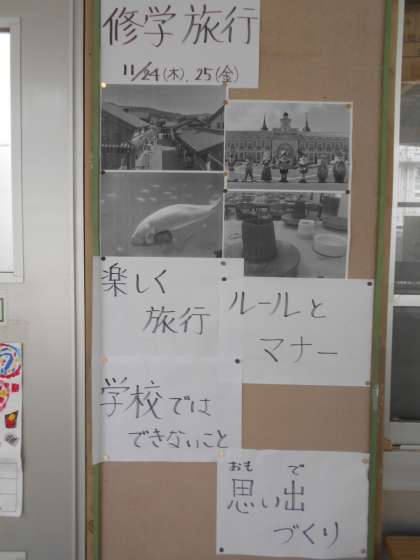 修学旅行
11/24(木).25(金)
楽しく
旅行
ルールと
マナー
学校では
できないこと
おも で
思い出
づくり